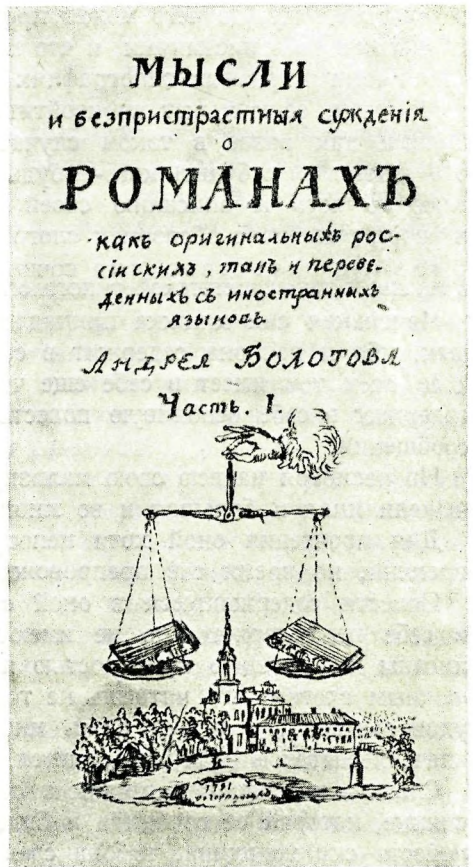 МЫСЛИ
и безпристрастныя сужденія
о
РОМАНАХЪ
какъ оригинальныхъ рос-
сійскихъ, такъ и переве-
денныхъ съ иностранныхъ
языковъ
АНДРЕЯ БОЛОТОВА
Часть. I.
1791